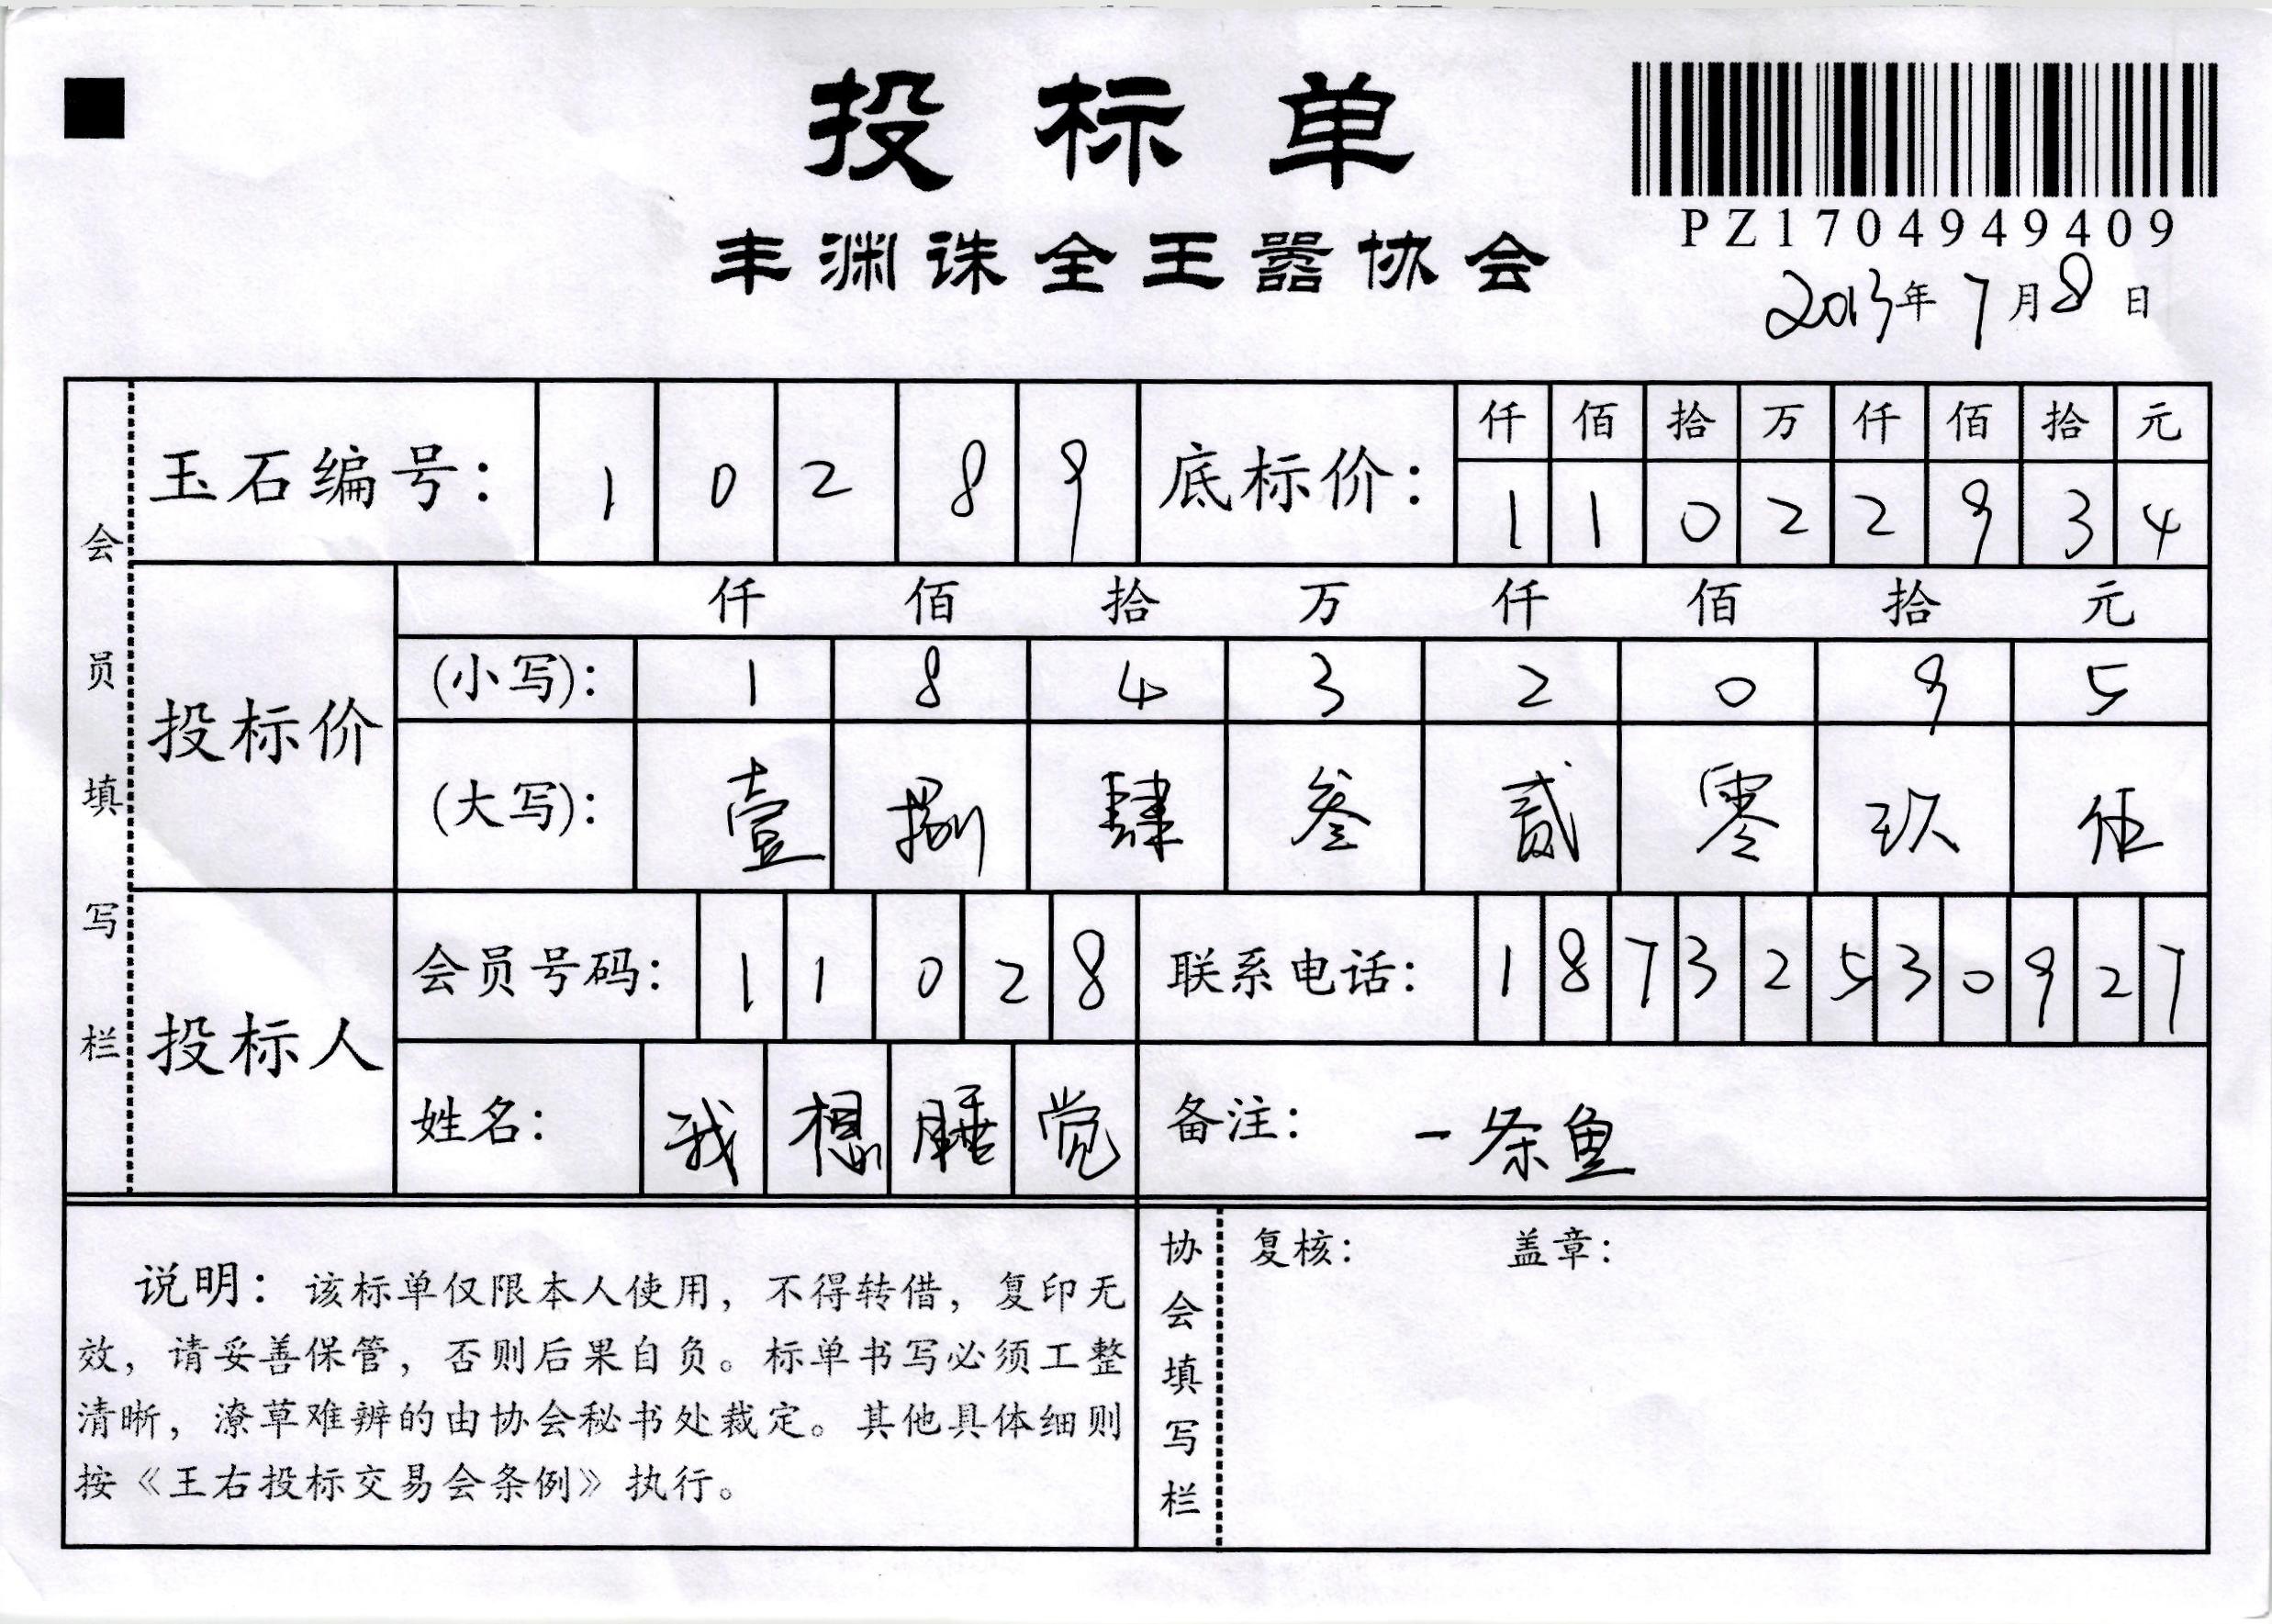 投标单
丰渊诛全王嚣协会
PZ1704949409
2013年7月8日
会员填写栏
玉石编号： 1 0 2 8 9 底标价： 仟 佰 拾 万 仟 佰 拾 元
1 1 0 2 2 9 3 4
投标价 仟 佰 拾 万 仟 佰 拾 元
(小写)： 1 8 4 3 2 0 9 5
(大写)： 壹 捌 肆 叁 贰 零 玖 伍
投标人 会员号码： 1 1 0 2 8 联系电话： 1 8 7 3 2 5 3 0 9 2 7
姓名： 我 想 睡 觉 备注： 一条鱼
说明：该标单仅限本人使用，不得转借，复印无
效，请妥善保管，否则后果自负。标单书写必须工整
清晰，潦草难辨的由协会秘书处裁定。其他具体细则
按《王右投标交易会条例》执行。
协会填写栏
复核： 盖章：